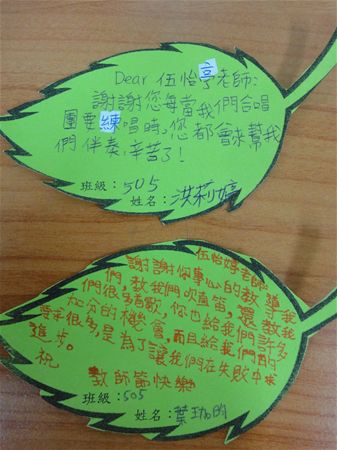 Dear 伍怡亭老師:
謝謝您每當我們合唱
團要練唱時,您都會來幫我
們伴奏,辛苦了!
班級:505
姓名:洪莉婷
伍怡婷老師
謝謝你專心的教導我
們,教我們吹直笛,還教我
們很多首歌,你也給我們許多
加分的機會,而且給我們的
要求很多,是為了讓我們在失敗中求
進步。
祝
教師節快樂
班級:505
姓名:葉珈